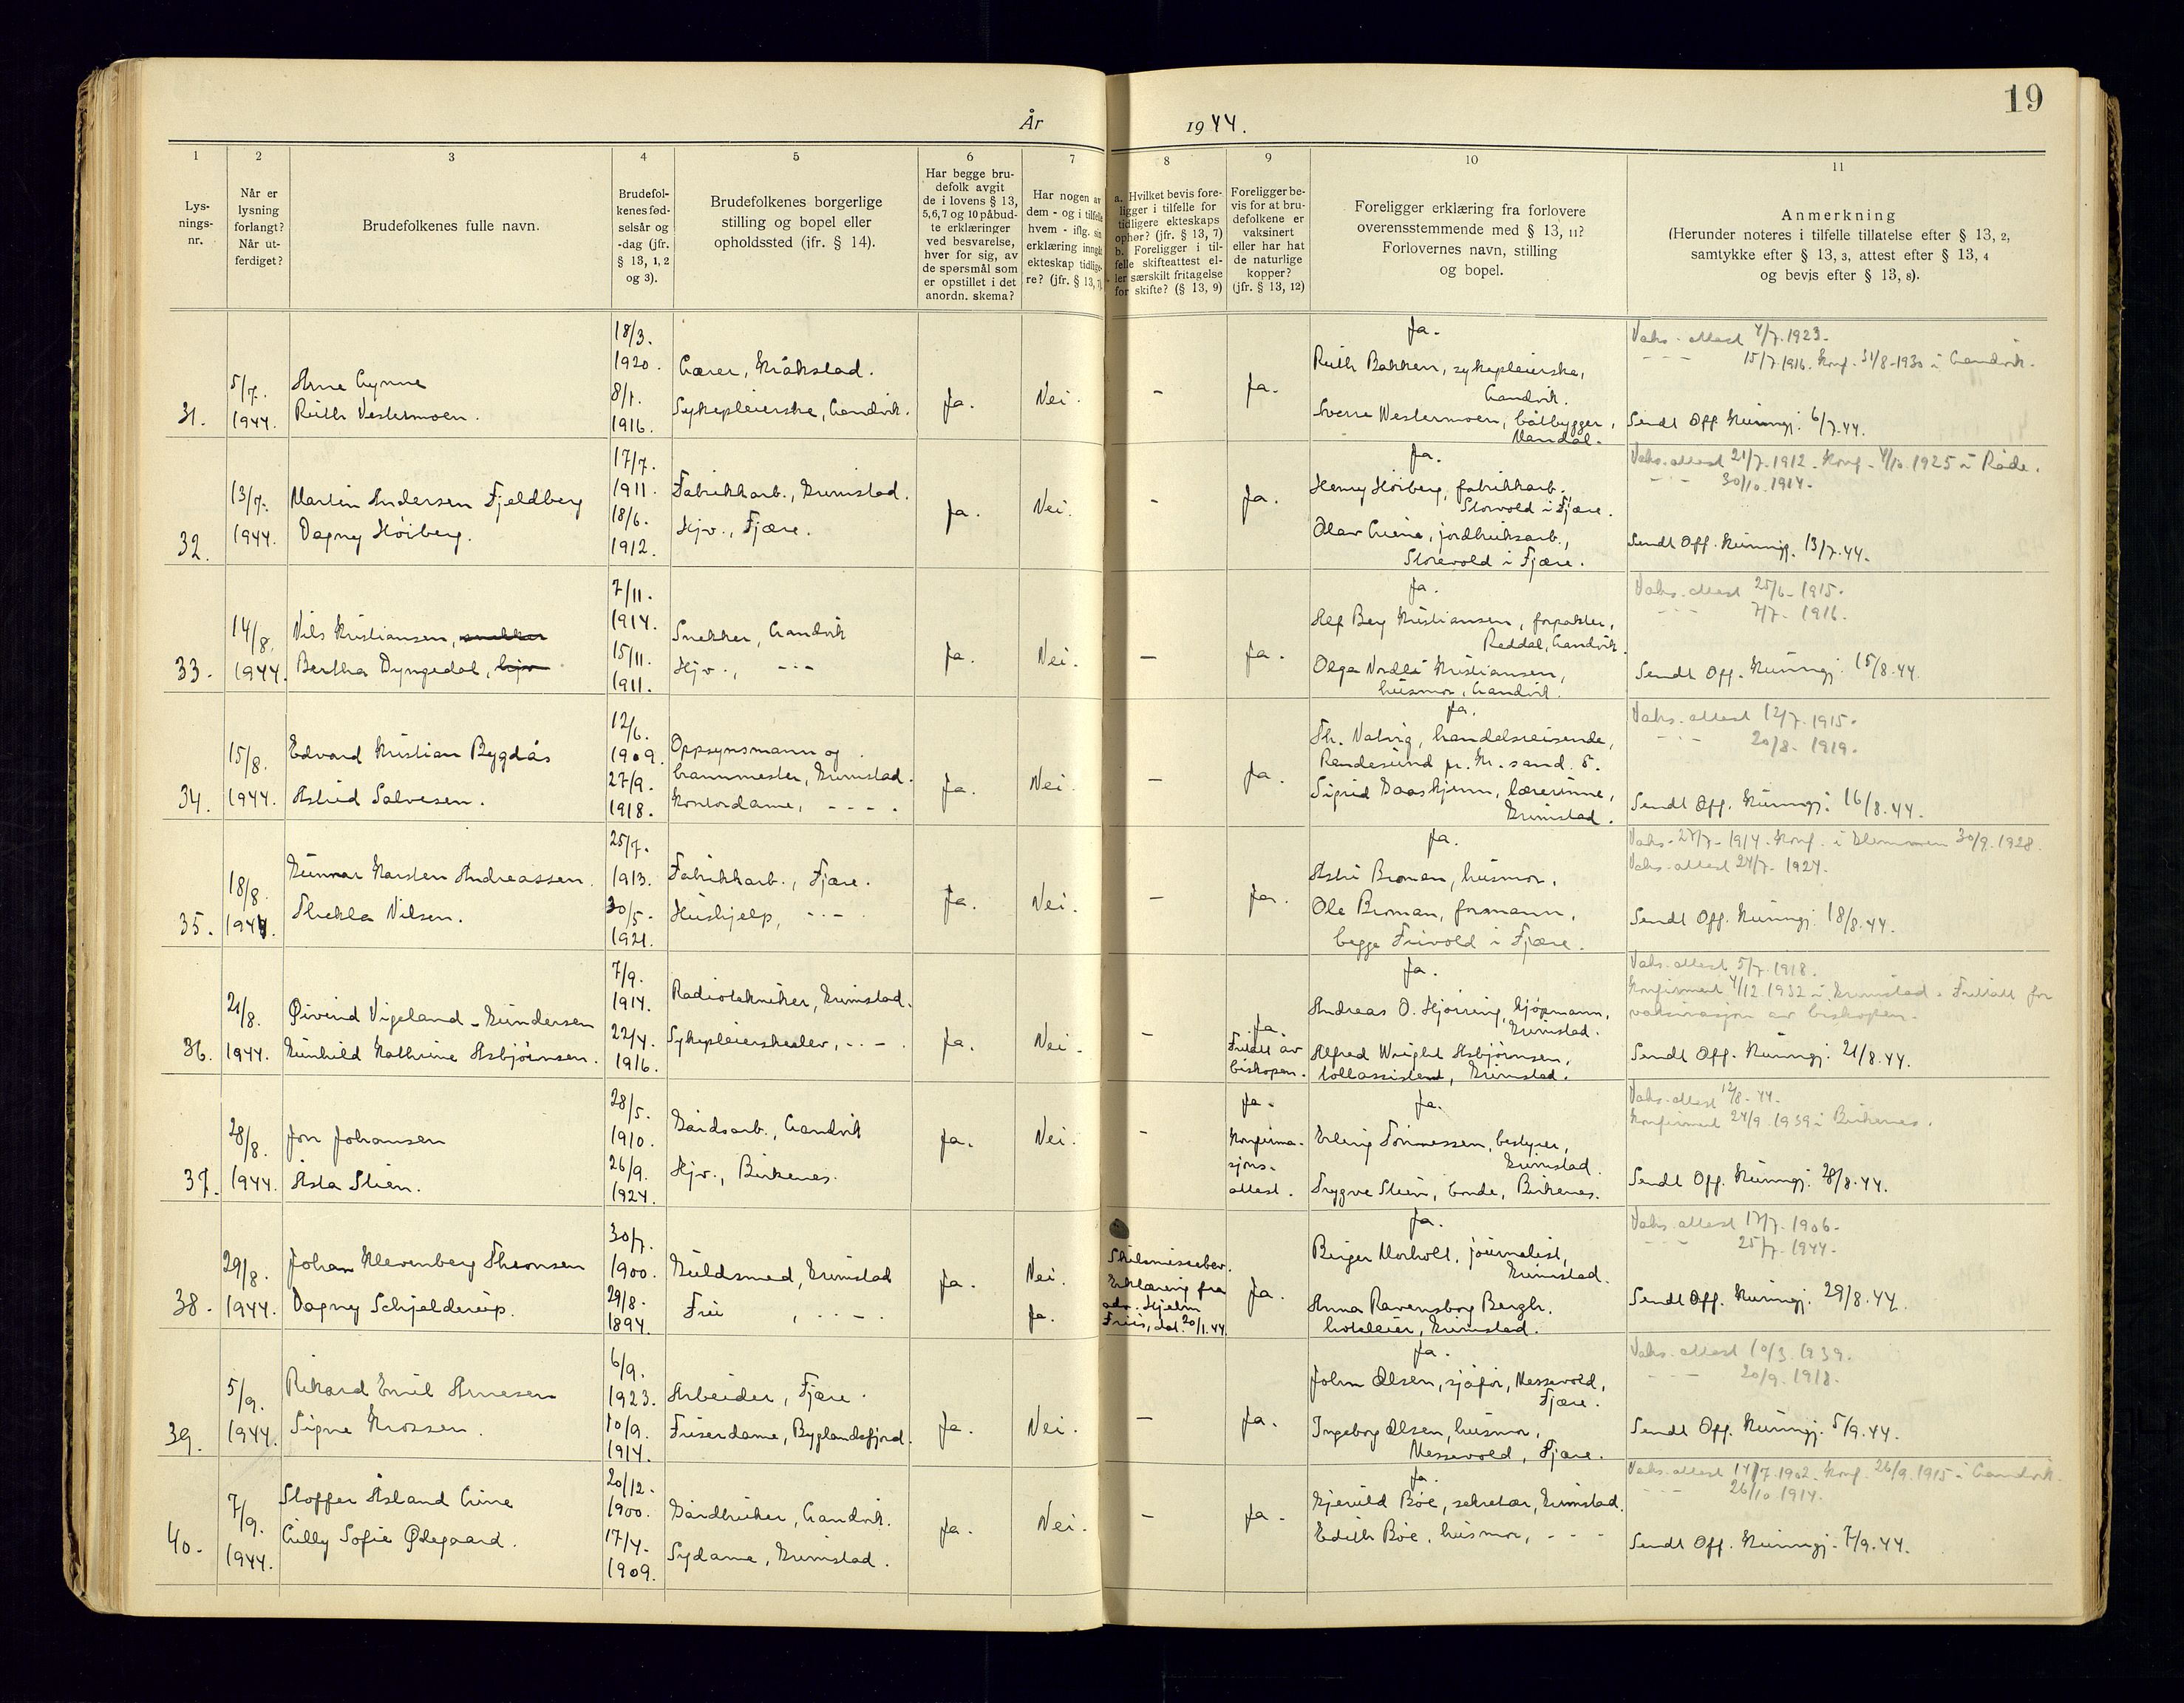 19
År 1944.
1 2 3 4 5 6 7 8 9 10 11
Lys-
nings-
nr.
Når er
lysning
forlangt?
Når ut-
ferdiget?
Brudefolkenes fulle navn.
Brudefol-
kenes fød-
selsår og
-dag (jfr.
§ 13, 1, 2
og 3).
Brudefolkenes borgerlige
stilling og bopel eller
opholdssted (jfr. § 14).
Har begge bru-
defolk avgit
de i lovens § 13,
5,6,7 og 10 påbud-
te erklæringer
ved besvarelse,
hver for sig, av
de spørsmål som
er opstillet i det
anordn. skema?
Har nogen av
dem - og i tilfelle
hvem - iflg. sin
erklæring inngått
ekteskap tidlige-
re? (jfr. § 13, 7).
a. Hvilket bevis fore-
ligger i tilfelle for
tidligere ekteskaps
ophør? (jfr. § 13, 7)
b. Foreligger i til-
felle skifteattest el-
ler særskilt fritagelse
for skifte? (§ 13, 9)
Foreligger be-
vis for at bru-
defolkene er
vaksinert
eller har hat
de naturlige
kopper?
(jfr. § 13, 12)
Foreligger erklæring fra forlovere
overensstemmende med § 13, 11?
Forlovernes navn, stilling
og bopel.
Anmerkning
(Herunder noteres i tilfelle tillatelse efter § 13, 2,
samtykke efter § 13, 3, attest efter § 13, 4
og bevis efter § 13, 8).
31.
5/7.
1944.
Arne Gynne
Ruth Vestermoen.
18/3.
1920.
8/1.
1916.
Garer, Kråkstad.
Sykepleierske, Landvik.
Ja.
Nei.
-
Ja.
Ja.
Ruth Bakken, sykepleierske,
Landvik.
Sverre Westermoen, båtbygger,
Mandal.
Vaks. attest 4/7. 1923.
- - - 15/7. 1916. Konf. 31/8-1930 i Landvik.
Sendt Off. Kunngj. 6/7.44.
32.
13/7.
1944.
Martin Andersen Fjeldberg
Dagny Høiberg.
17/7.
1911.
18/6.
1912.
Fabrikkarb., Grimstad.
Hjv., Fjære.
Ja.
Nei.
-
Ja.
Ja.
Henry Høiberg, fabrikkarb.
Storvold i Fjære.
Olav Greine, jordbruksarb.,
Storevold i Fjære.
Vaks. attest 21/7. 1912. Konf. 4/10. 1925 i Råde.
- - - 30/10. 1914.
Sendt Off. Kunngj. 13/7.44.
33.
14/8.
1944.
Nils Kristiansen, snekker
Bertha Dyngedal, hjv
7/11.
1914.
15/11.
1911.
Snekker, Landvik
Hjv., - - -
Ja.
Nei.
-
Ja.
Ja.
Alf Berg Kristiansen, forpakter,
Reddal, Landvik.
Olga Nordli Kristiansen,
husmor, Landvik.
Vaks. attest 25/6. 1915.
- - - 7/7. 1916.
Sendt Off. Kunngj. 15/8.44.
34.
15/8.
1944.
Edvard Kristian Bygdås
Astrid Salvesen.
12/6.
1909.
27/9.
1918.
Oppsynsmann og
brannmester, Grimstad.
Kontordame, - - - .
Ja.
Nei.
-
Ja.
Ja.
Th. Natvig, handelsreisende,
Randesund pr. Kr.sand. S.
Sigrid Daaskjenn, lærerinne,
Grimstad.
Vaks. attest 12/7. 1915.
- - - 20/8. 1919.
Sendt Off. Kunngj. 16/8.44.
35.
18/8.
1944.
Gunnar Karsten Andreassen.
Thekla Nilsen.
25/7.
1913.
30/5.
1921.
Fabrikkarb., Fjære.
Hushjelp, - - -
Ja.
Nei.
-
Ja.
Ja.
Astri Broman, husmor.
Ole Broman, formann,
begge Frivold i Fjære.
Vaks. 27/7. 1914. Konf. i Glemmen 30/9. 1928.
Vaks. attest 24/7. 1924.
Sendt Off. Kunngj. 18/8.44.
36.
21/8.
1944.
Øivind Vigeland-Gundersen
Gunhild Kathrine Asbjørnsen.
7/9.
1914.
22/4.
1916.
Radiotekniker, Grimstad.
Sykepleierskeelev, - - -
Ja.
Nei.
-
Ja.
Fritatt av
biskopen.
Ja.
Andreas O. Hjorring, kjøpmann,
Grimstad.
Alfred Wright Asbjørnsen,
tollassistent, Grimstad.
Vaks. attest 5/7. 1918.
Konfirmert 4/12. 1932 i Grimstad. Fritatt for
vaksinasjon av biskopen.
Sendt Off. Kunngj. 21/8.44.
37.
28/8.
1944.
Jon Johansen
Asta Stien.
28/5.
1910.
26/9.
1924.
Gårdsarb., Landvik
Hjv., Birkenes.
Ja.
Nei.
-
Ja.
Konfirma-
sjons-
attest.
Ja.
Erling Tønnessen, bestyrer,
Grimstad.
Trygve Stien, bonde, Birkenes.
Vaks. attest 12/8. 44.
Konfirmert 24/9. 1939 i Birkenes.
Sendt Off. Kunngj. 28/8.44.
38.
29/8.
1944.
Johan Klevenberg Thronsen
Dagny Schjelderup.
30/7.
1900.
29/8.
1894.
Gullsmed, Grimstad
Fru , - - - .
Ja.
Nei.
Ja.
Skilsmissebev.
Erklæring fra
adv. Hjelm
Friis, dat. 20/1.44.
Ja.
Ja.
Birger Morholt, journalist,
Grimstad.
Anna Ravensborg Bergh,
hoteleier, Grimstad.
Vaks. attest 17/7. 1906.
- - - 25/7. 1944.
Sendt Off. Kunngj. 29/8.44.
39.
5/9.
1944.
Rikard Emil Arnesen
Signe Krossen.
6/9.
1923.
10/9.
1914.
Arbeider, Fjære.
Friserdame, Byglandsfjord.
Ja.
Nei.
-
Ja.
Ja.
John Olsen, sjåfør, Messevold,
Fjære.
Ingeborg Olsen, husmor,
Messevold, Fjære.
Vaks. attest 10/3 1939.
- - - 20/9. 1918.
Sendt Off. Kunngj. 5/9.44.
40.
7/9.
1944.
Stoffer Åsland Line
Lilly Sofie Ødegaard.
20/12.
1900.
17/4.
1909.
Gårdbruker, Landvik.
Sydame, Grimstad.
Ja.
Nei.
-
Ja.
Ja.
Kjerulf Bøe, sekretær, Grimstad.
Edith Bøe, husmor, - - -
Vaks. attest 14/7. 1902. Konf. 26/9. 1915 i Landvik.
- - - 26/10. 1914.
Sendt Off. Kunngj. 7/9.44.